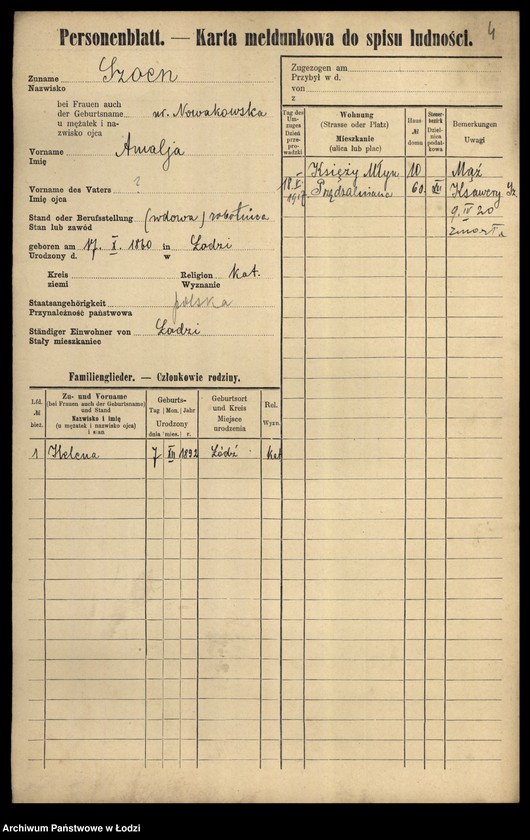 4
Personenblatt. — Karta meldunkowa do spisu ludności.
Zuname Szoen
Nazwisko
bei Frauen auch
der Geburtsname ur. Nowakowska
u mężatek i na-
zwisko ojca
Vorname Amalja
Imię
Vorname des Vaters ?
Imię ojca
Stand oder Berufsstellung (wdowa) robotnica
Stan lub zawód
geboren am 17. X. 1860 in Łodzi
Urodzony d. w
Kreis Religion kat.
ziemi Wyznanie
Staatsangehörigkeit polska
Przynależność państwowa
Ständiger Einwohner von Łodzi
Stały mieszkaniec
Zugezogen am
Przybył w d.
von
z
Tag des Um-zuges Dzień prze-prowadzki
Wohnung
(Strasse oder Platz)
Mieszkanie
(ulica lub plac)
Haus-
№
domu
Steuer-bezirk Dziel-nica podat-kowa
Bemerkungen
Uwagi
– Księży Młyn 10 Mąż
18.X. 1917 Przędzalniana 60. XII Ksawery Sz.
9. IV 20
zmarła
Familienglieder. — Członkowie rodziny.
Lfd.
№
bież.
Zu- und Vorname
(bei Frauen auch der Geburtsname)
und Stand
Nazwisko i imię
(u mężatek i nazwisko ojca)
i stan
Geburts-
Tag | Mon. | Jahr
Urodzony
dnia | mies. | r.
Geburtsort
und Kreis
Miejsce
urodzenia
Rel.
Wyzn.
1 Helena 7 XII 1892 Łódź kat
Archiwum Państwowe w Łodzi